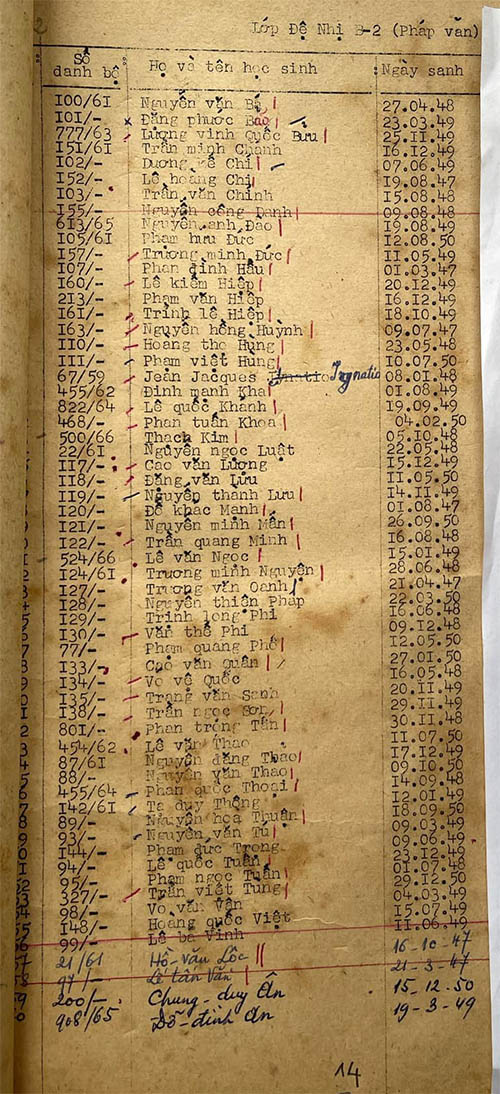 Lớp Đệ Nhị B-2 (Pháp văn)
Số danh bộ Họ và tên học sinh Ngày sanh
I00/6I Nguyễn văn Bá 27.04.48
I0I/- Đặng phước Bảo 23.03.49
777/63 Lượng vinh Quốc Bửu 25.II.49
I5I/6I Trần minh Chánh I6.I2.49
I02/- Dương kế Chi 07.06.49
I52/- Lê hoàng Chi I9.08.47
I03/- Trần văn Chinh I5.08.48
I55/- Nguyễn công Danh 09.08.48
6I3/65 Nguyễn anh Đào I9.08.49
I05/6I Phạm hưu Đức I2.08.50
I57/- Trương minh Đức II.05.49
I07/- Phan đình Hầu 0I.03.47
I60/- Lê kiếm Hiệp 20.I2.49
2I3/- Phạm văn Hiệp I6.I2.49
I6I/- Trinh lê Hiệp I8.I0.49
I63/- Nguyễn hồng Huỳnh 09.07.47
II0/- Hoang thọ Hùng 23.05.48
III/- Phạm việt Hùng I0.07.50
67/59 Jean Jacques Ignatio 08.0I.48
455/62 Đinh mạnh Kha 0I.08.49
822/64 Lê quốc Khanh I9.09.49
468/- Phan tuấn Khoa 04.02.50
500/66 Thach Kim 05.I0.48
22/6I Nguyễn ngọc Luật 22.05.48
II7/- Cao văn Lượng I5.I2.49
II8/- Đặng văn Lựu II.05.50
II9/- Nguyễn thanh Lưu I4.II.49
I20/- Đỗ khac Mạnh 0I.08.47
I2I/- Nguyễn minh Mẫn 26.09.50
I22/- Trần quang Minh I6.08.48
524/66 Lê văn Ngọc I5.0I.49
I24/6I Trương minh Nguyện 28.06.48
I27/- Trương văn Oanh 2I.04.47
I28/- Nguyễn thiên Pháp 22.03.50
I29/- Trinh long Phi I6.06.48
I30/- Văn thế Phi 09.I2.48
77/- Phạm quang Phố I2.05.50
I33/- Cao văn Quân 27.0I.50
I34/- Vo vê Quốc I6.05.48
I35/- Trang văn Sanh 20.II.49
I38/- Trần ngọc Sơn 29.II.49
80I/- Phan trọng Tấn 30.II.48
454/62 Lê văn Thao II.07.50
87/6I Nguyễn đăng Thao I7.I2.49
88/- Nguyễn văn Thao 09.I0.50
455/64 Phan quốc Thoại I4.09.48
I42/6I Tạ duy Thông I2.0I.49
89/- Nguyễn hoa Thuận I8.09.50
93/- Nguyễn văn Tú 09.03.49
I44/- Phạm đức Trọng 09.06.49
94/- Lê quốc Tuấn 23.I2.49
95/- Phạm ngọc Tuấn 0I.07.48
327/- Trần viết Tung 29.I2.50
98/- Vo văn Vân 04.03.49
I48/- Hoang quốc Việt I5.07.49
99/- Lê bá Vinh II.06.49
21/61 Hồ-văn Lốc 16-10-47
97/- Lê tấn Văn 21-3-47
200/- Chung-duy Ân 15-12-50
908/65 Đỗ-đình Ân 19-3-49
14